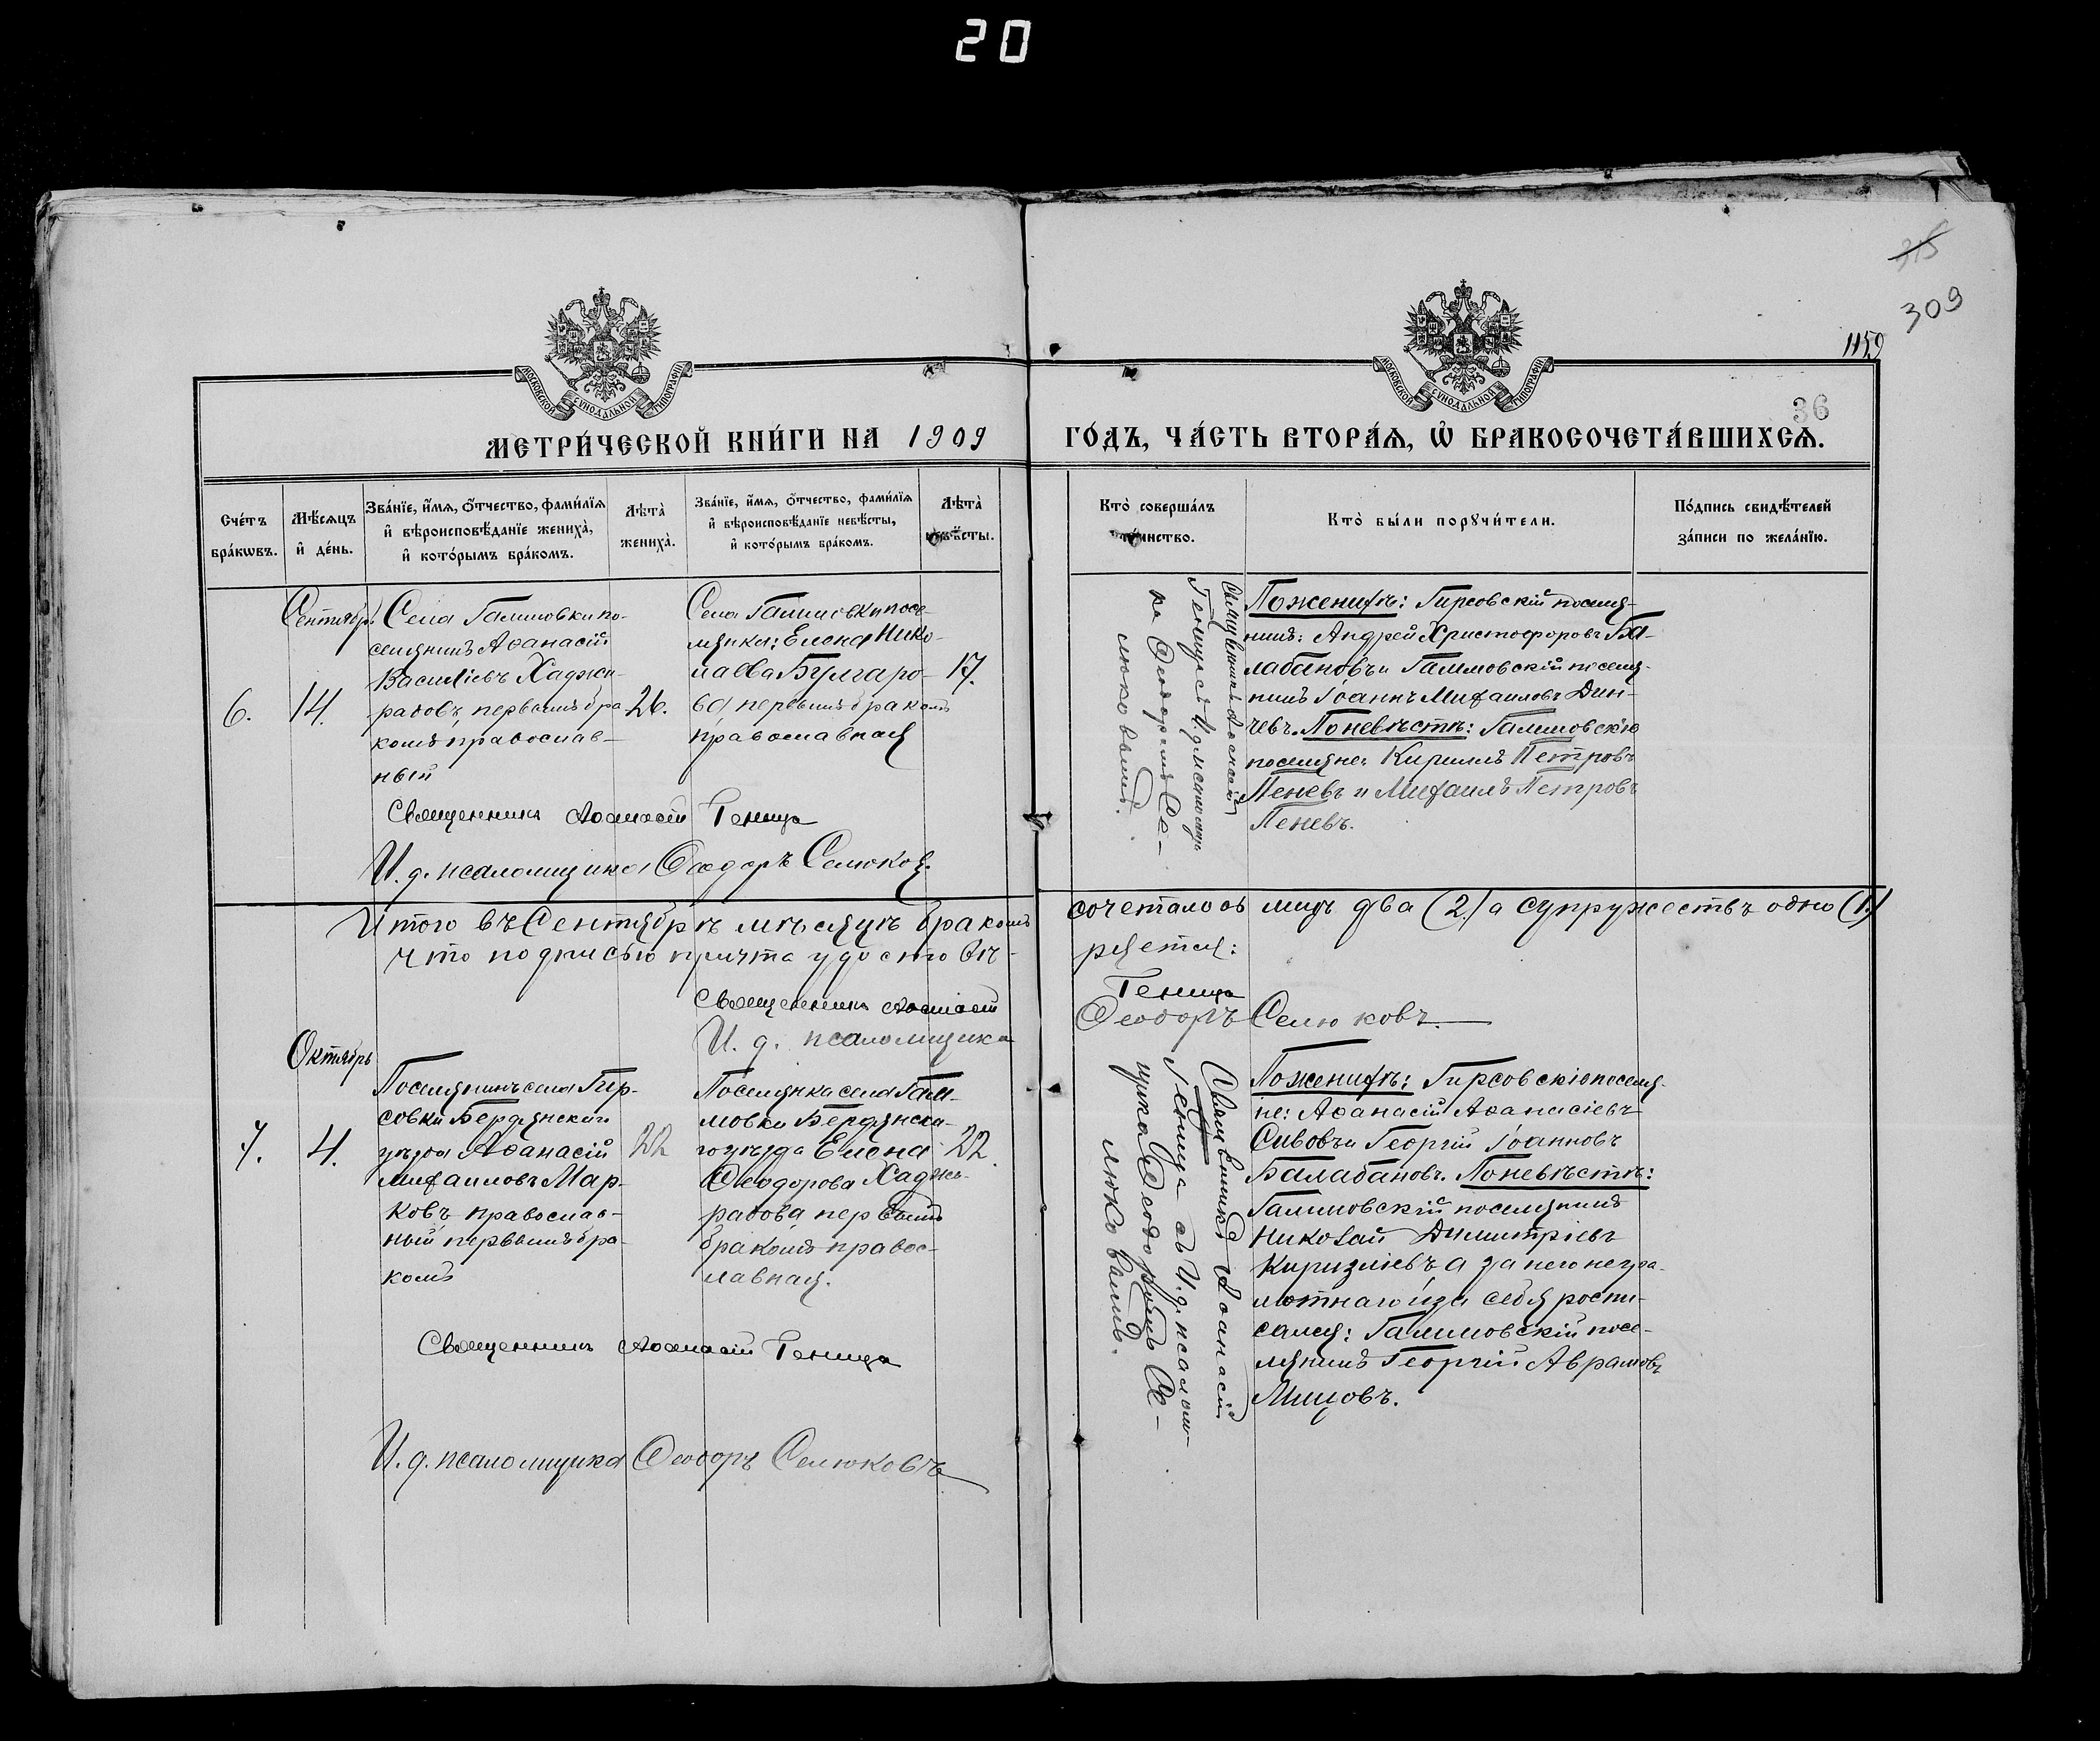 20
315
309
1159
36
МОСКОВСКОЙ СѴНОДАЛЬНОЙ ТИПОГРАФІИ
МОСКОВСКОЙ СѴНОДАЛЬНОЙ ТИПОГРАФІИ
МЕТРИ́ЧЕСКОЙ КНИ́ГИ НА 1909
ГО́ДЪ, ЧА́СТЬ ВТОРА́Я, Ѽ БРАКОСОЧЕТА́ВШИХСЯ.
Сче́тъ
бра́кѡвъ.
Мѣ́сяцъ
и҆ де́нь.
Зва́нїе, и҆́мя, ѻ҆́тчество, фами́лїя
и҆ вѣроисповѣ́данїе жениха̀,
и҆ кото́рымъ бра́комъ.
Лѣта̀
жениха̀.
Зва́нїе, и҆́мя, ѻ҆́тчество, фами́лїя
и҆ вѣроисповѣ́данїе невѣ́сты,
и҆ кото́рымъ бра́комъ.
Лѣта̀
невѣ́сты.
Кто̀ соверша́лъ
та́инство.
Кто̀ бы́ли порꙋчи́тели.
По́дпись свидѣ́телей
за́писи по жела́нїю.
Сентябрь
6.
14.
Села Гаммовки по-
селянинъ Аѳанасій
Василіевъ Хаджи-
радовъ, первымъ бра
комъ православ-
ный
26.
Села Гаммовки посе-
лянка: Елена Нико-
лаева Булгаро-
ва первымъ бракомъ
православная
17.
Священникъ Аѳанасій
Геница съ И.д. псаломщи-
ка Ѳеодоромъ Се-
люковымъ.
По женихѣ: Гирсовскій поселя-
нинъ: Андрей Христофоровъ Ба-
лабановъ и Гаммовскій поселя-
нинъ Іоаннъ Михаиловъ Дин-
чевъ. По невѣстѣ: Гаммовскіе
поселяне: Кириллъ Петровъ
Пеневъ и Михаилъ Петровъ
Пеневъ.
Священникъ Аѳанасій Геница
И. д. псаломщика Ѳеодоръ Селюковъ.
Итого въ Сентябрѣ мѣсяцѣ бракомъ сочеталось лицъ два (2) а супружествъ одно (1)
что подписью причта удостовѣ-
ряется:
Священникъ Аѳанасій Геница
И. д. псаломщика Ѳеодоръ Селюковъ.
Октябрь
7.
4.
Поселянинъ села Гир-
совки Бердянскаго
уѣзда Аѳанасій
Михаиловъ Мар-
ковъ православ-
ный первымъ бра-
комъ
22
Поселянка села Гам-
мовки Бердянска-
го уѣзда Елена
Ѳеодорова Хаджи-
радова первымъ
бракомъ правос-
лавная.
22.
Священникъ Аѳанасій
Геница съ И.д. псалом-
щика Ѳеодоромъ Се-
люковымъ.
По женихѣ: Гирсовскіе поселя-
не: Аѳанасій Аѳанасіевъ
Сивовъ и Георгій Іоанновъ
Балабановъ. По невѣстѣ:
Гаммовскій поселянинъ
Николай Димитріевъ
Киризлiевъ, а за него негра-
мотнаго и за себя роспи-
сался: Гаммовскій посе-
лянинъ Георгій Аврамовъ
Мицовъ.
Священникъ Аѳанасій Геница
И. д. псаломщика Ѳеодоръ Селюковъ